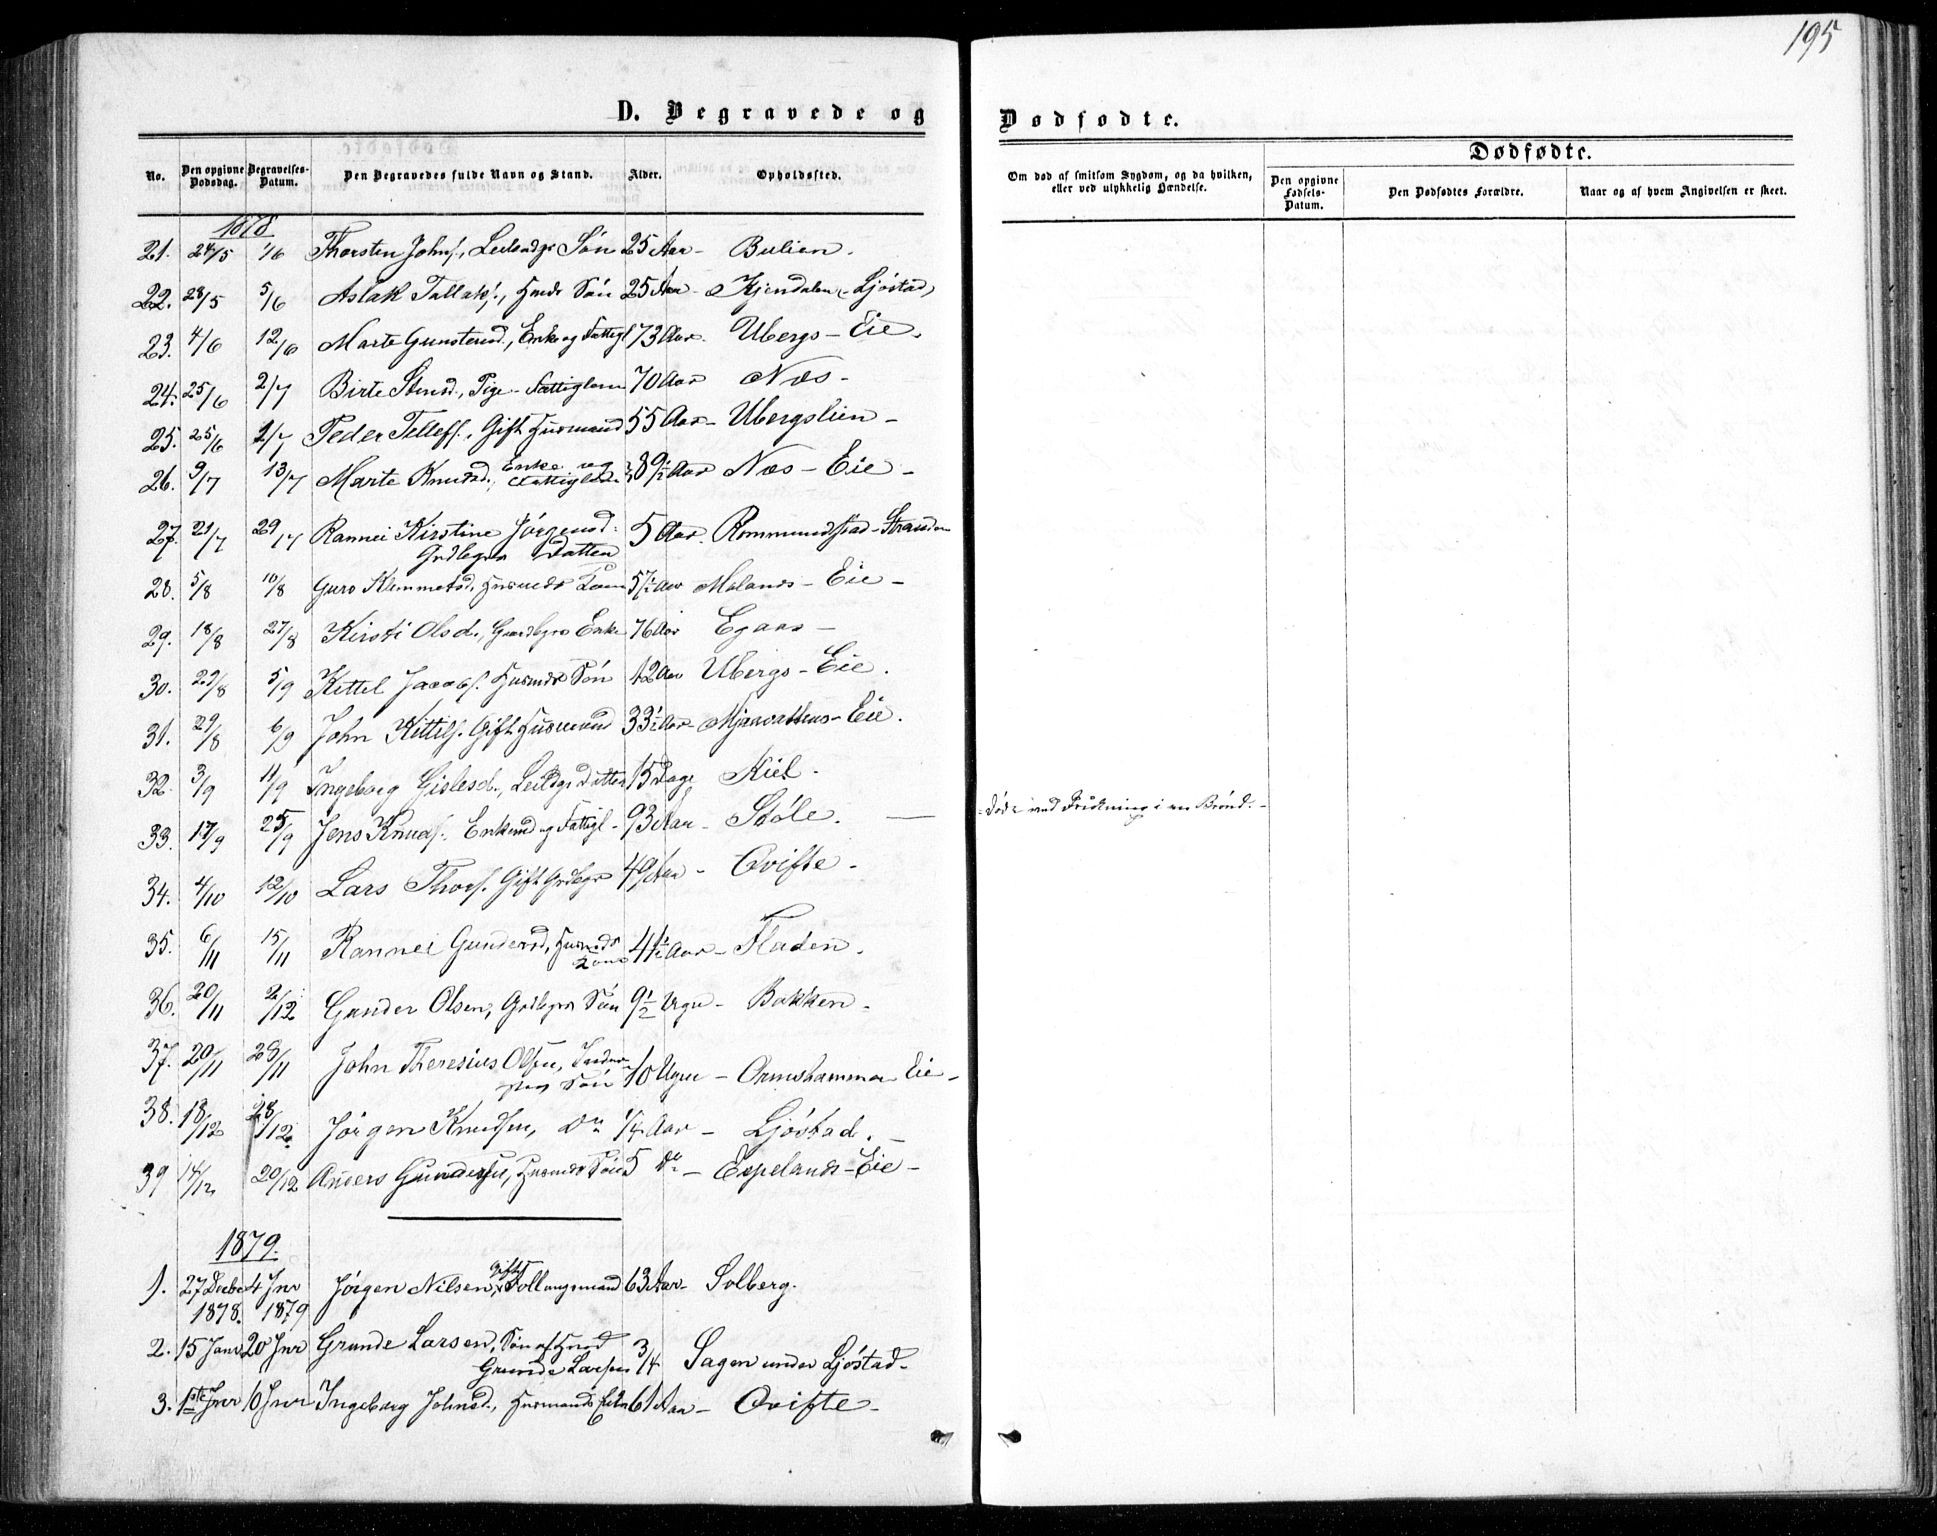 195
D. Begravede og Dødfødte.
No. Den opgivne Dødsdag. Begravelses-Datum. Den Begravedes fulde Navn og Stand. Alder. Opholdssted.
Om død af smitsom Sygdom, og da hvilken, eller ved ulykkelig Hændelse.
Dødfødte.
Den opgivne Fødsels-Datum. Den Dødfødtes Forældre. Naar og af hvem Angivelsen er skeet.
1878
21. 24/5 1/6 Thorsten Johns., Søn 25 Aar - Bulien.
22. 28/5 5/6 Aslak Tallaks., Søn 25 Aar - Kjendalen - Ljöstad
23. 4/6 12/6 Marte Gunstensd., Enke og Fattigl 73 Aar. Ubergs - Eie.
24. 25/6 2/7 Birte Stensd., Pige - Fattiglem 70 Aar Næs -
25. 25/6 2/7 Peder Tellefs., Gift Husmand 55 Aar - Ubergslien -
26. 9/7 13/7 Marte Knudsd., Enke og 89½ Aar Næs - Eie -
27. 21/7 29/7 Rannei Kirstine Jörgensd. 5 Aar. Rommundstad - Stranden
Grdbegrs Datter
28. 5/8 10/8 Guro Klemmetsd., Husmds Kone 57½ Aar Molands - Eie -
29. 18/8 27/8 Kirsti Olsd., Gaardbgrs Enke 76 Aar Egaas -
30. 29/8 5/9 Kittel Jacobs. Husmds Søn 12 Aar Ubergs - Eie.
31. 29/8 6/9 John Kittils. Gift Husmand 33½ Aar - Mjaavattens - Eie.
32. 3/9 11/9 Ingeborg Gislesd., Datter 15 Dage Kiil.
33. 17/9 25/9 Jens Knuds. Enkemd og Fattigl - 93 Aar - Støle. —
Död ved i en Brönd. -
34. 4/10 12/10 Lars Thors. Gift Grdbgr 49 Aar - Qvifte -
35. 6/11 15/11 Rannei Gundersd, Husmds 41½ Aar - Fladen.
Kone
36. 20/11 2/12 Gunder Olsen, Grdbegrs Søn 9½ Uger - Bakken -
37. 20/11 28/11 John Theresius Olsen, Inder- 10 Uger - Ormshammer Eie -
Søn
38. 18/12 28/12 Jörgen Knudsen, Do 1/4 Aar - Ljöstad. -
39 14/12 20/12 Anders Gundersen, Husmds Søn 5 Do - Espelands - Eie -
1879.
1. 27 Decbr 4 Jnr Jörgen Nilsen, gift Follaugsmand 63 Aar - Solberg.
1878. 1879
2. 15 Janr 20 Jnr Grunde Larsen, Søn af Husmd 3/4 Sagen under Ljöstad -
Grunde Larsen
3. 1ste Jnr 10 Jnr Ingeborg Johnsd., Husmands Enke 61 Aar - Qvifte -